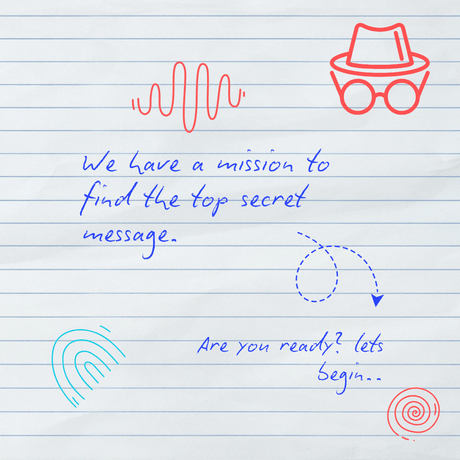 We have a mission to
find the top secret
message.
Are you ready? lets
begin..